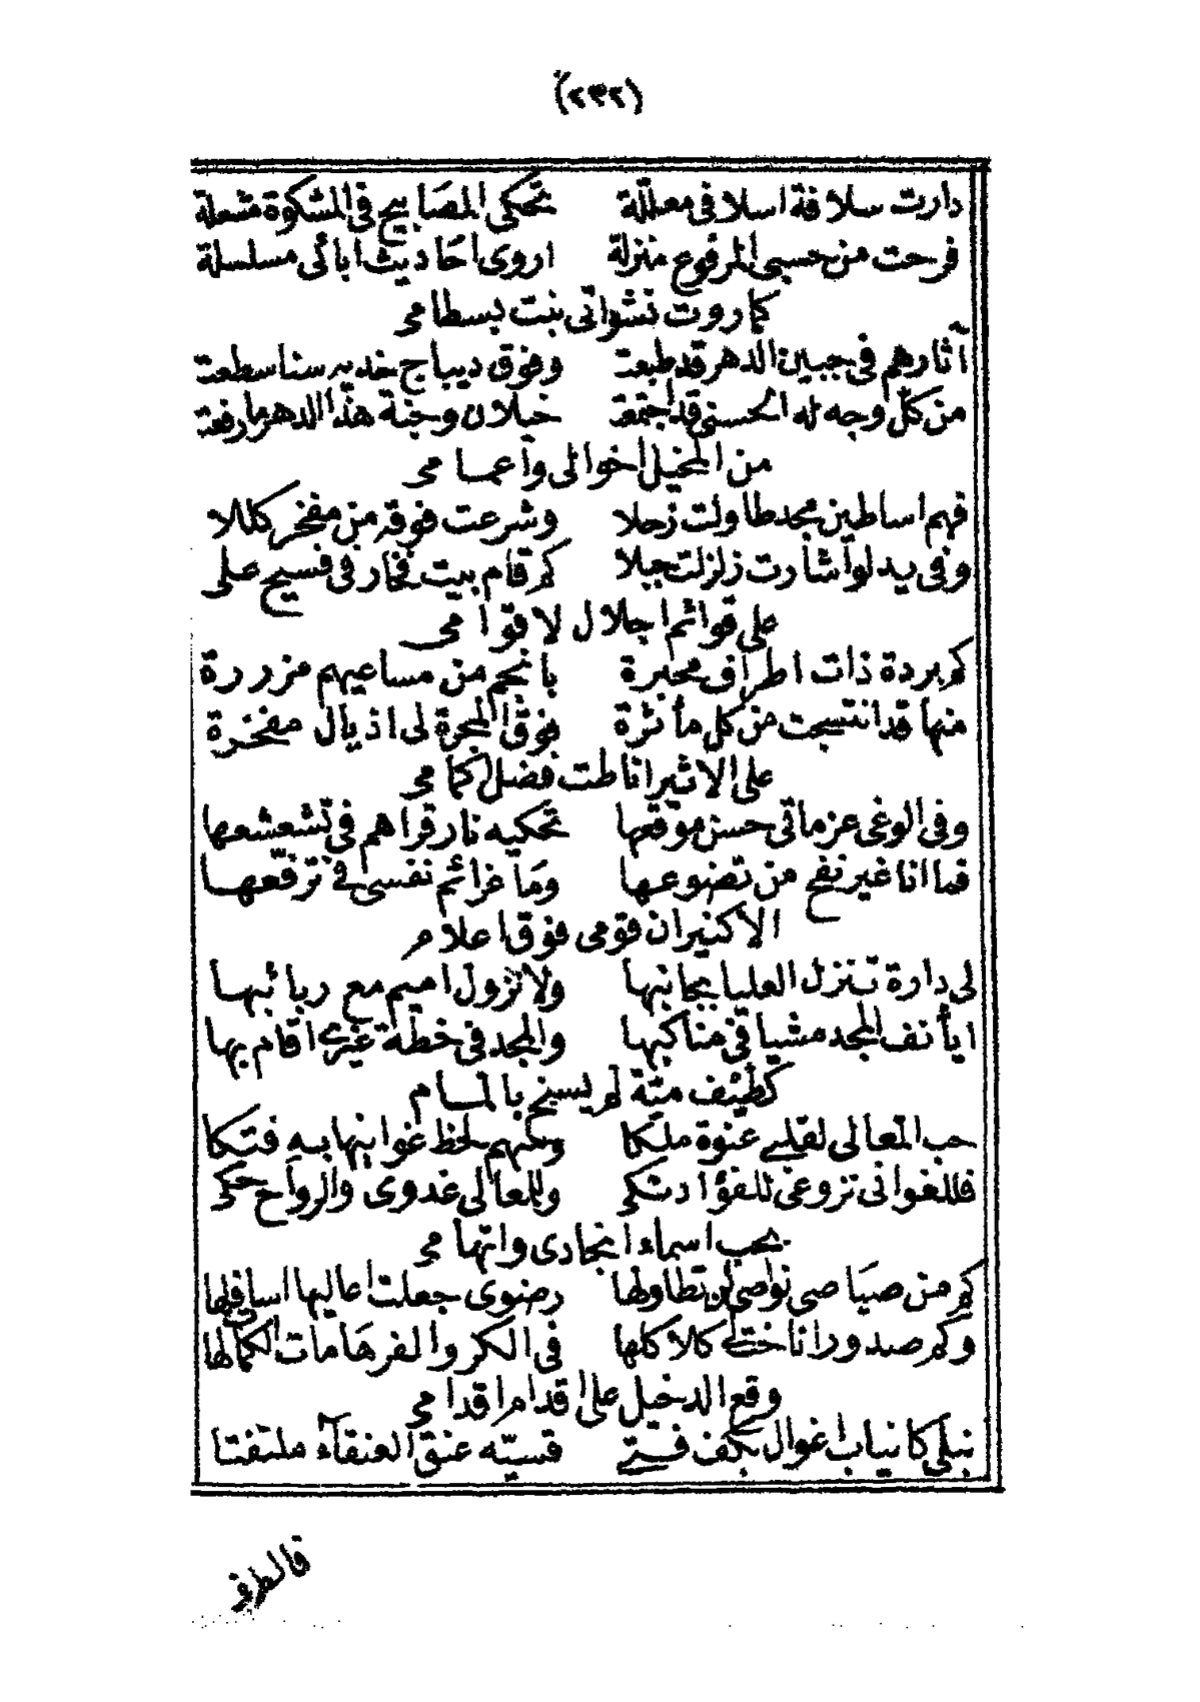 (٢٣٢)
دارت سلافة اسلافى معللّة تحكى المصَابيح فى المشكوة مشعلة
فرحت من حسبى المرفوع منزلة اروى احَاديث ابائى مسلسلة
كما روت نشواتى بنت بسطامى
آثارهم فى جبين الدهر قد طبعت وفوق ديباج خديه سنا سطعت
من كلّ وجه له الحسنى قد اجتمعت خيلان وجنة هذا الدهر ما رفعت
من المخيل اخوالى وأعمامى
فهم اساطين مجد طاولت زحلا وشرعت فوقه من مفخر كللا
وفى يد لو أشارت زلزلت جبلا كم قام بيت فخار فى فسيح على
على قوائم اجلال لاقوامى
كم بردة ذات اطراف محبرة بانجم من مساعيهم مزررة
منها قد انتسجت من كل مأثرة فوق المجرة لى اذيال مفخرة
على الاثير اناطت فضل اكمامى
وفى الوغى عزماتى حسن موقعها تحكيه نار قراهم فى تشعشعها
فما انا غير نفح من تضوعها ومَا عزائم نفسى فى ترفّعها
الا كنيران قومى فوق اعلام
لى دارة تنزل العليا بجانبها ولا تزول اميم مع ربائبها
ايأنف المجد مشيا فى مناكبها والمجد فى خطّة غيرى اقام بها
كطيف ميّة لم يسنح بالمام
حب المعالى لقلبى عنوة ملكا وكم بلحظ غوانيها به فتكا
فللغوانى نزوعى للفؤاد شكى وللمعالى غدوى والرواح حكى
بحب اسماء انجادى واتهامى
كم من صيَاصى نواصى لن تطاولها رضوى جعلت اعاليها اسافلها
وكم صدور اناختلى كلاكلها فى الكر والفر هَامات الكمى لها
وقع الدخيل على اقدام اقدامى
نبلى كانياب اغوال بكف فتى قسيّه عنق العنقآء ملتفتا